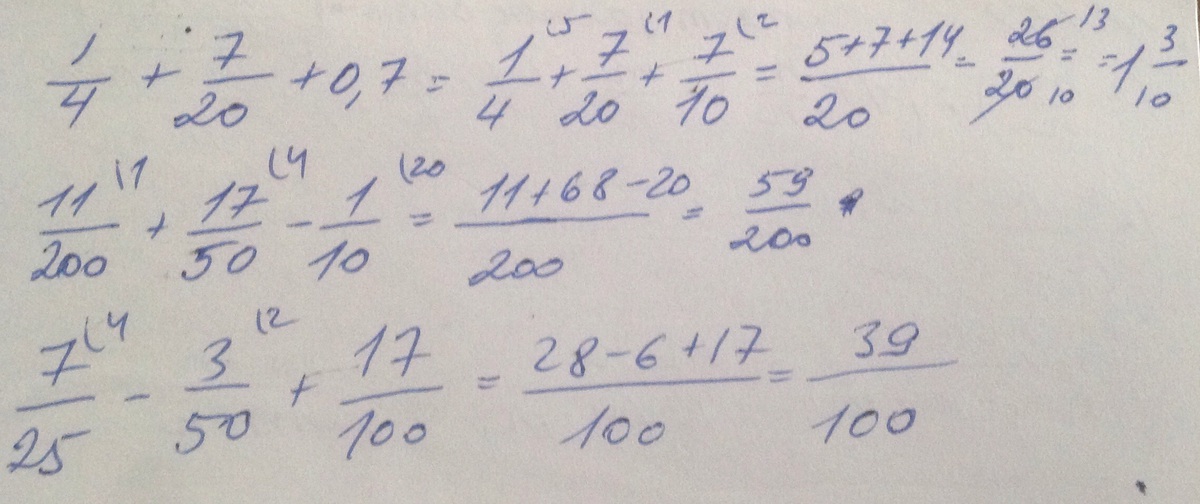 1/4 + 7/20 + 0,7 = 1/4 (5 + 7/20 (1 + 7/10 (2 = 5+7+14/20 = 26/20 13/10 = = 1 3/10
11/200 (1 + 17/50 (4 - 1/10 (20 = 11+68-20/200 = 59/200
7/25 (4 - 3/50 (2 + 17/100 = 28-6+17/100 = 39/100